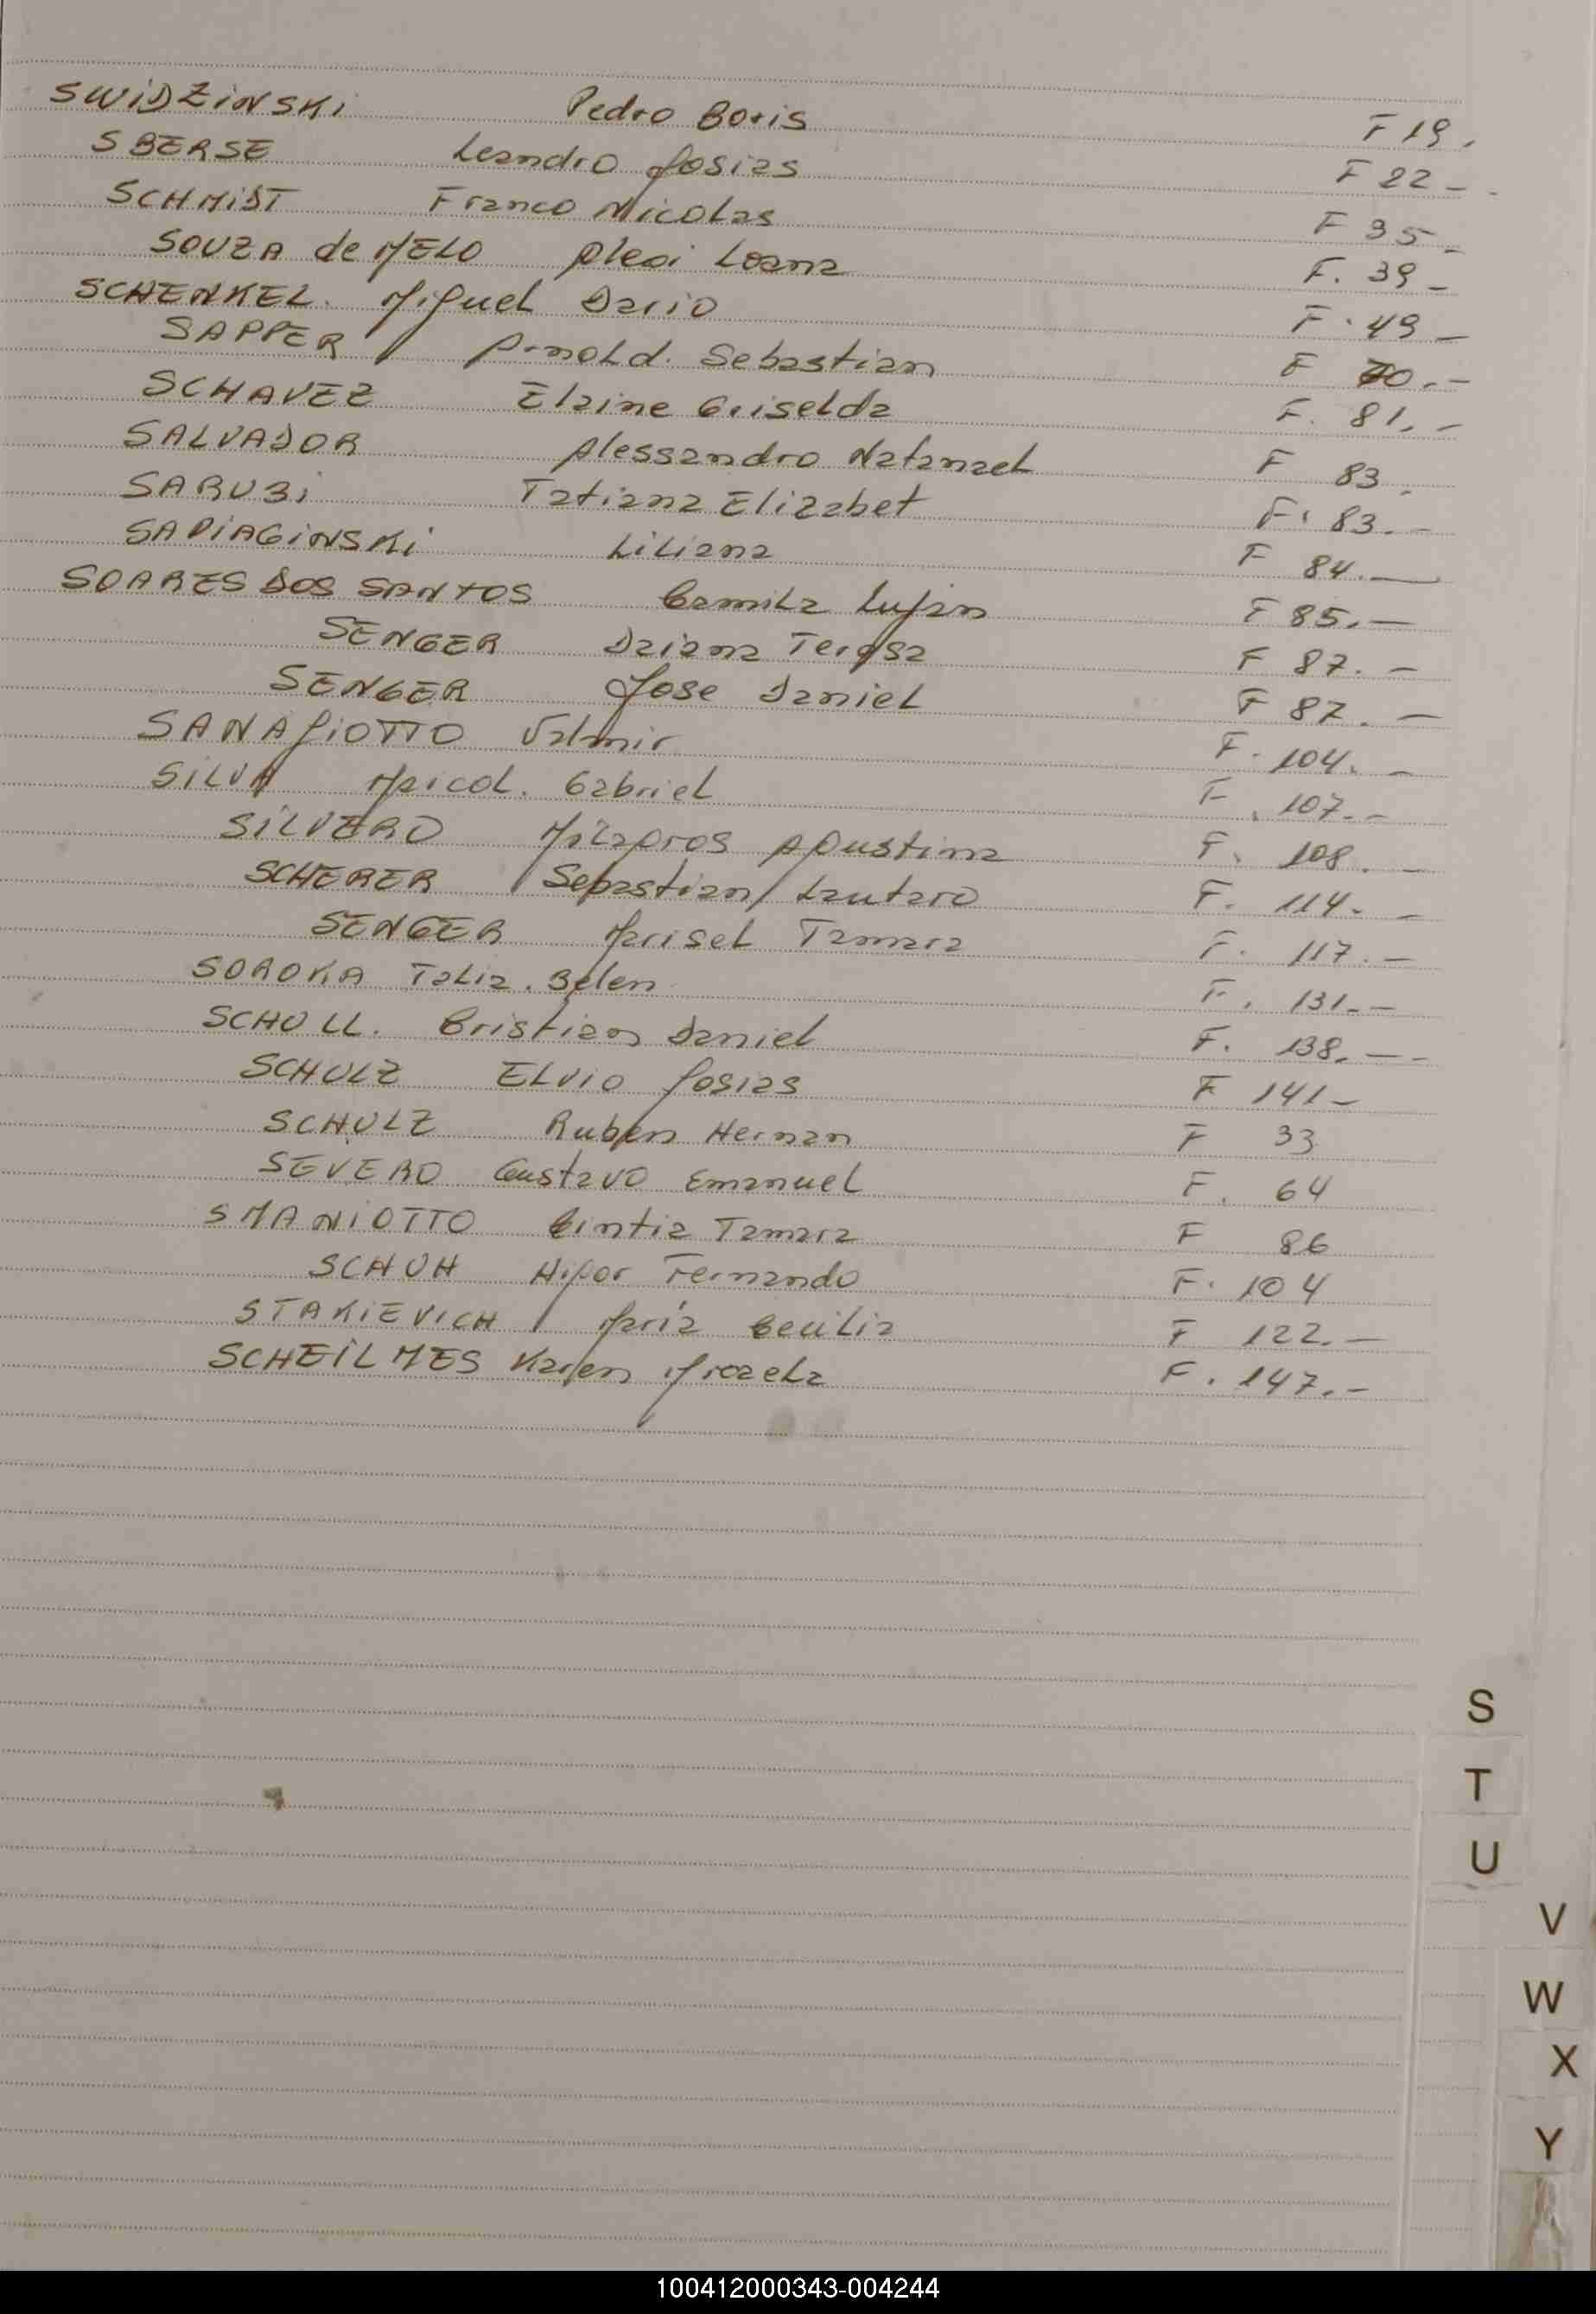 SWIDZINSKI Pedro Boris F 19.
SBERSE Leandro Josias F 22 -
SCHMIDT Franco Nicolas F 35 -
SOUZA de MELO Loana F. 39 -
SCHENKEL. Miguel Dario F. 49 -
SAPPER Arnold. Sebastian F 70. -
SCHAVEZ Elaine Griselda F. 81. -
SALVADOR Alessandro Natanael F 83.
SARUBI Tatiana Elizabet F. 83. -
Liliana F 84. -
SOARES DOS SANTOS Camila Lujan F 85. -
SENGER Daiana Teresa F 87. -
SENGER Jose Daniel F 87. -
SANAGIOTTO Valmir F. 104. -
SILVA Maicol. Gabriel F. 107. -
SILVERO Milagros Agustina F. 108. -
SCHERER Sebastian Lautaro F. 114. -
SENGER Marisel Tamara F. 117. -
SOROKA Talia. Belen F. 131. -
SCHOLL. Cristian Daniel F. 138. - -
SCHULZ ELVIO Josias F 141 -
SCHULZ Ruben Hernan F 33
SEVERO Gustavo Emanuel F. 64
SMANIOTTO Cintia Tamara F 86
SCHUH Higor Fernando F. 104
STAKIEVICH María Cecilia F 122. -
SCHEILMES Karen F. 147. -
S
T
U
V
W
X
Y
100412000343-004244